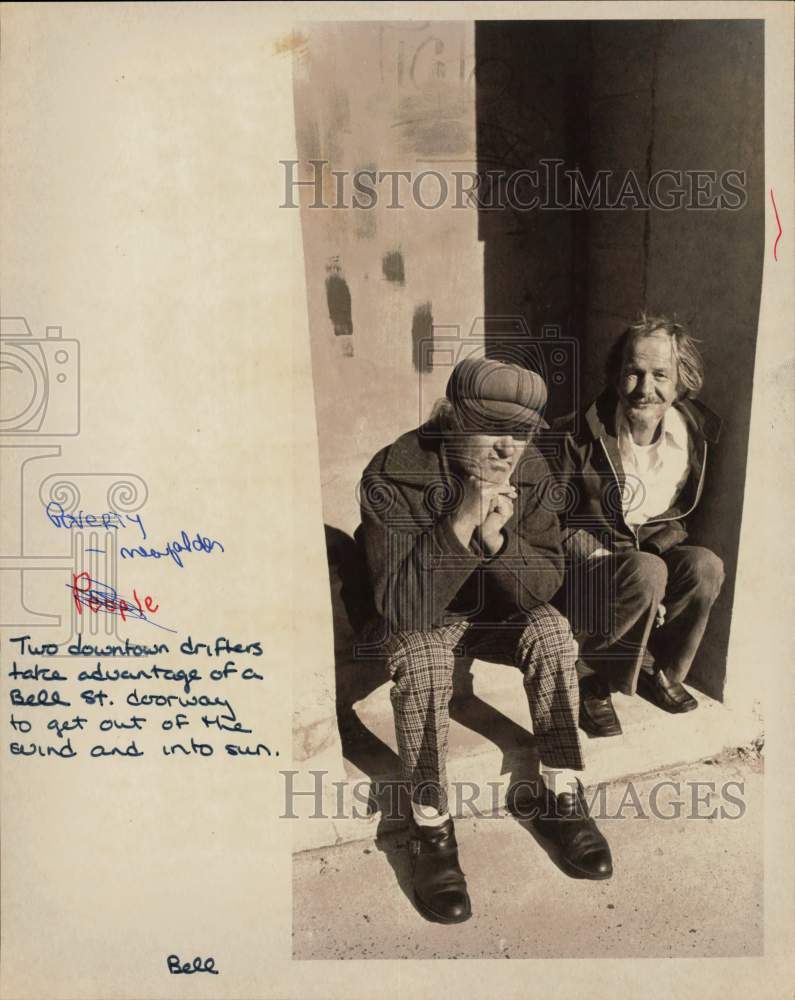 HISTORICIMAGES
Poverty
People
Two downtown drifters
take advantage of a
Bell St. doorway
to get out of the
wind and into sun.
HISTORICIMAGES
Bell